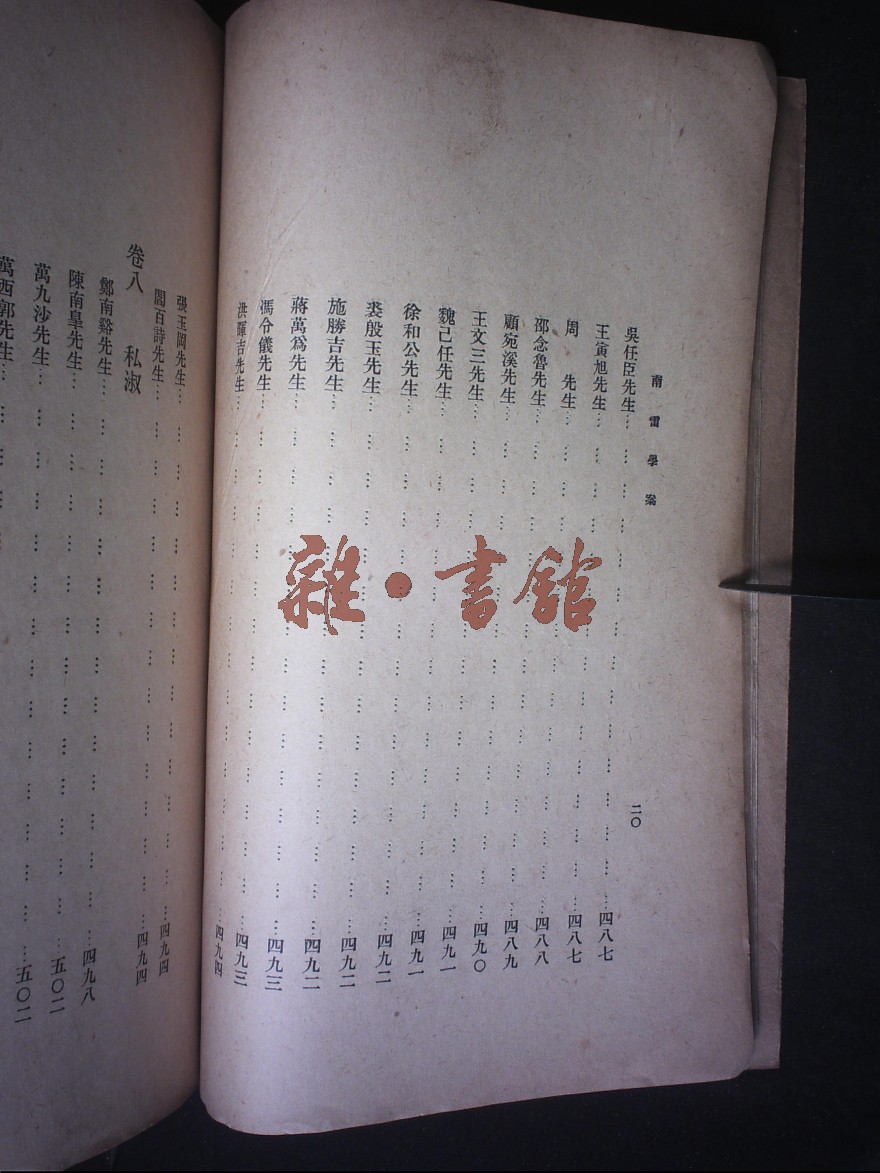 南雷學案 二〇
吳任臣先生……四八七
王寅旭先生……四八七
周　先生……四八八
邵念魯先生……四八九
顧宛溪先生……四九〇
王文三先生……四九一
魏己任先生……四九一
徐和公先生……四九二
裘殷玉先生……四九二
施勝吉先生……四九二
蔣萬爲先生……四九三
馮令儀先生……四九三
洪暉吉先生……四九四
張玉岡先生……四九四
閻百詩先生……四九四
卷八　私淑
鄭南谿先生……四九八
陳南臯先生……五〇二
萬九沙先生……五〇二
萬西郭先生……
雜·書館